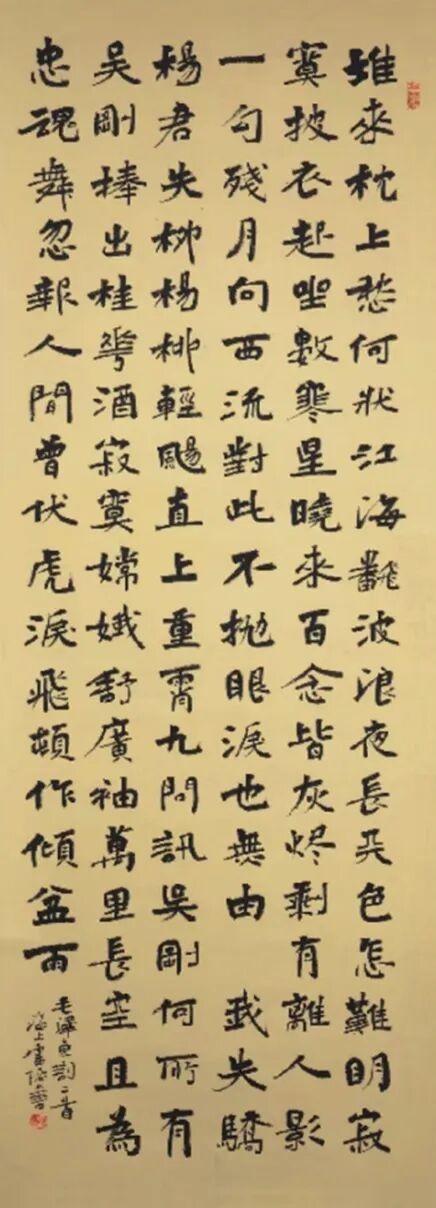 堆來枕上愁何狀江海飜波浪夜長天色怎難明寂
寞披衣起坐數寒星曉來百念皆灰烬剩有離人影
一勾殘月向西流對此不拋眼淚也無由 我失驕
楊君失柳楊柳輕颺直上重霄九問訊吳剛何所有
吳剛捧出桂花酒寂寞嫦娥舒廣袖萬里長空且為
忠魂舞忽報人間曾伏虎淚飛頓作傾盆雨
毛澤東詞二首